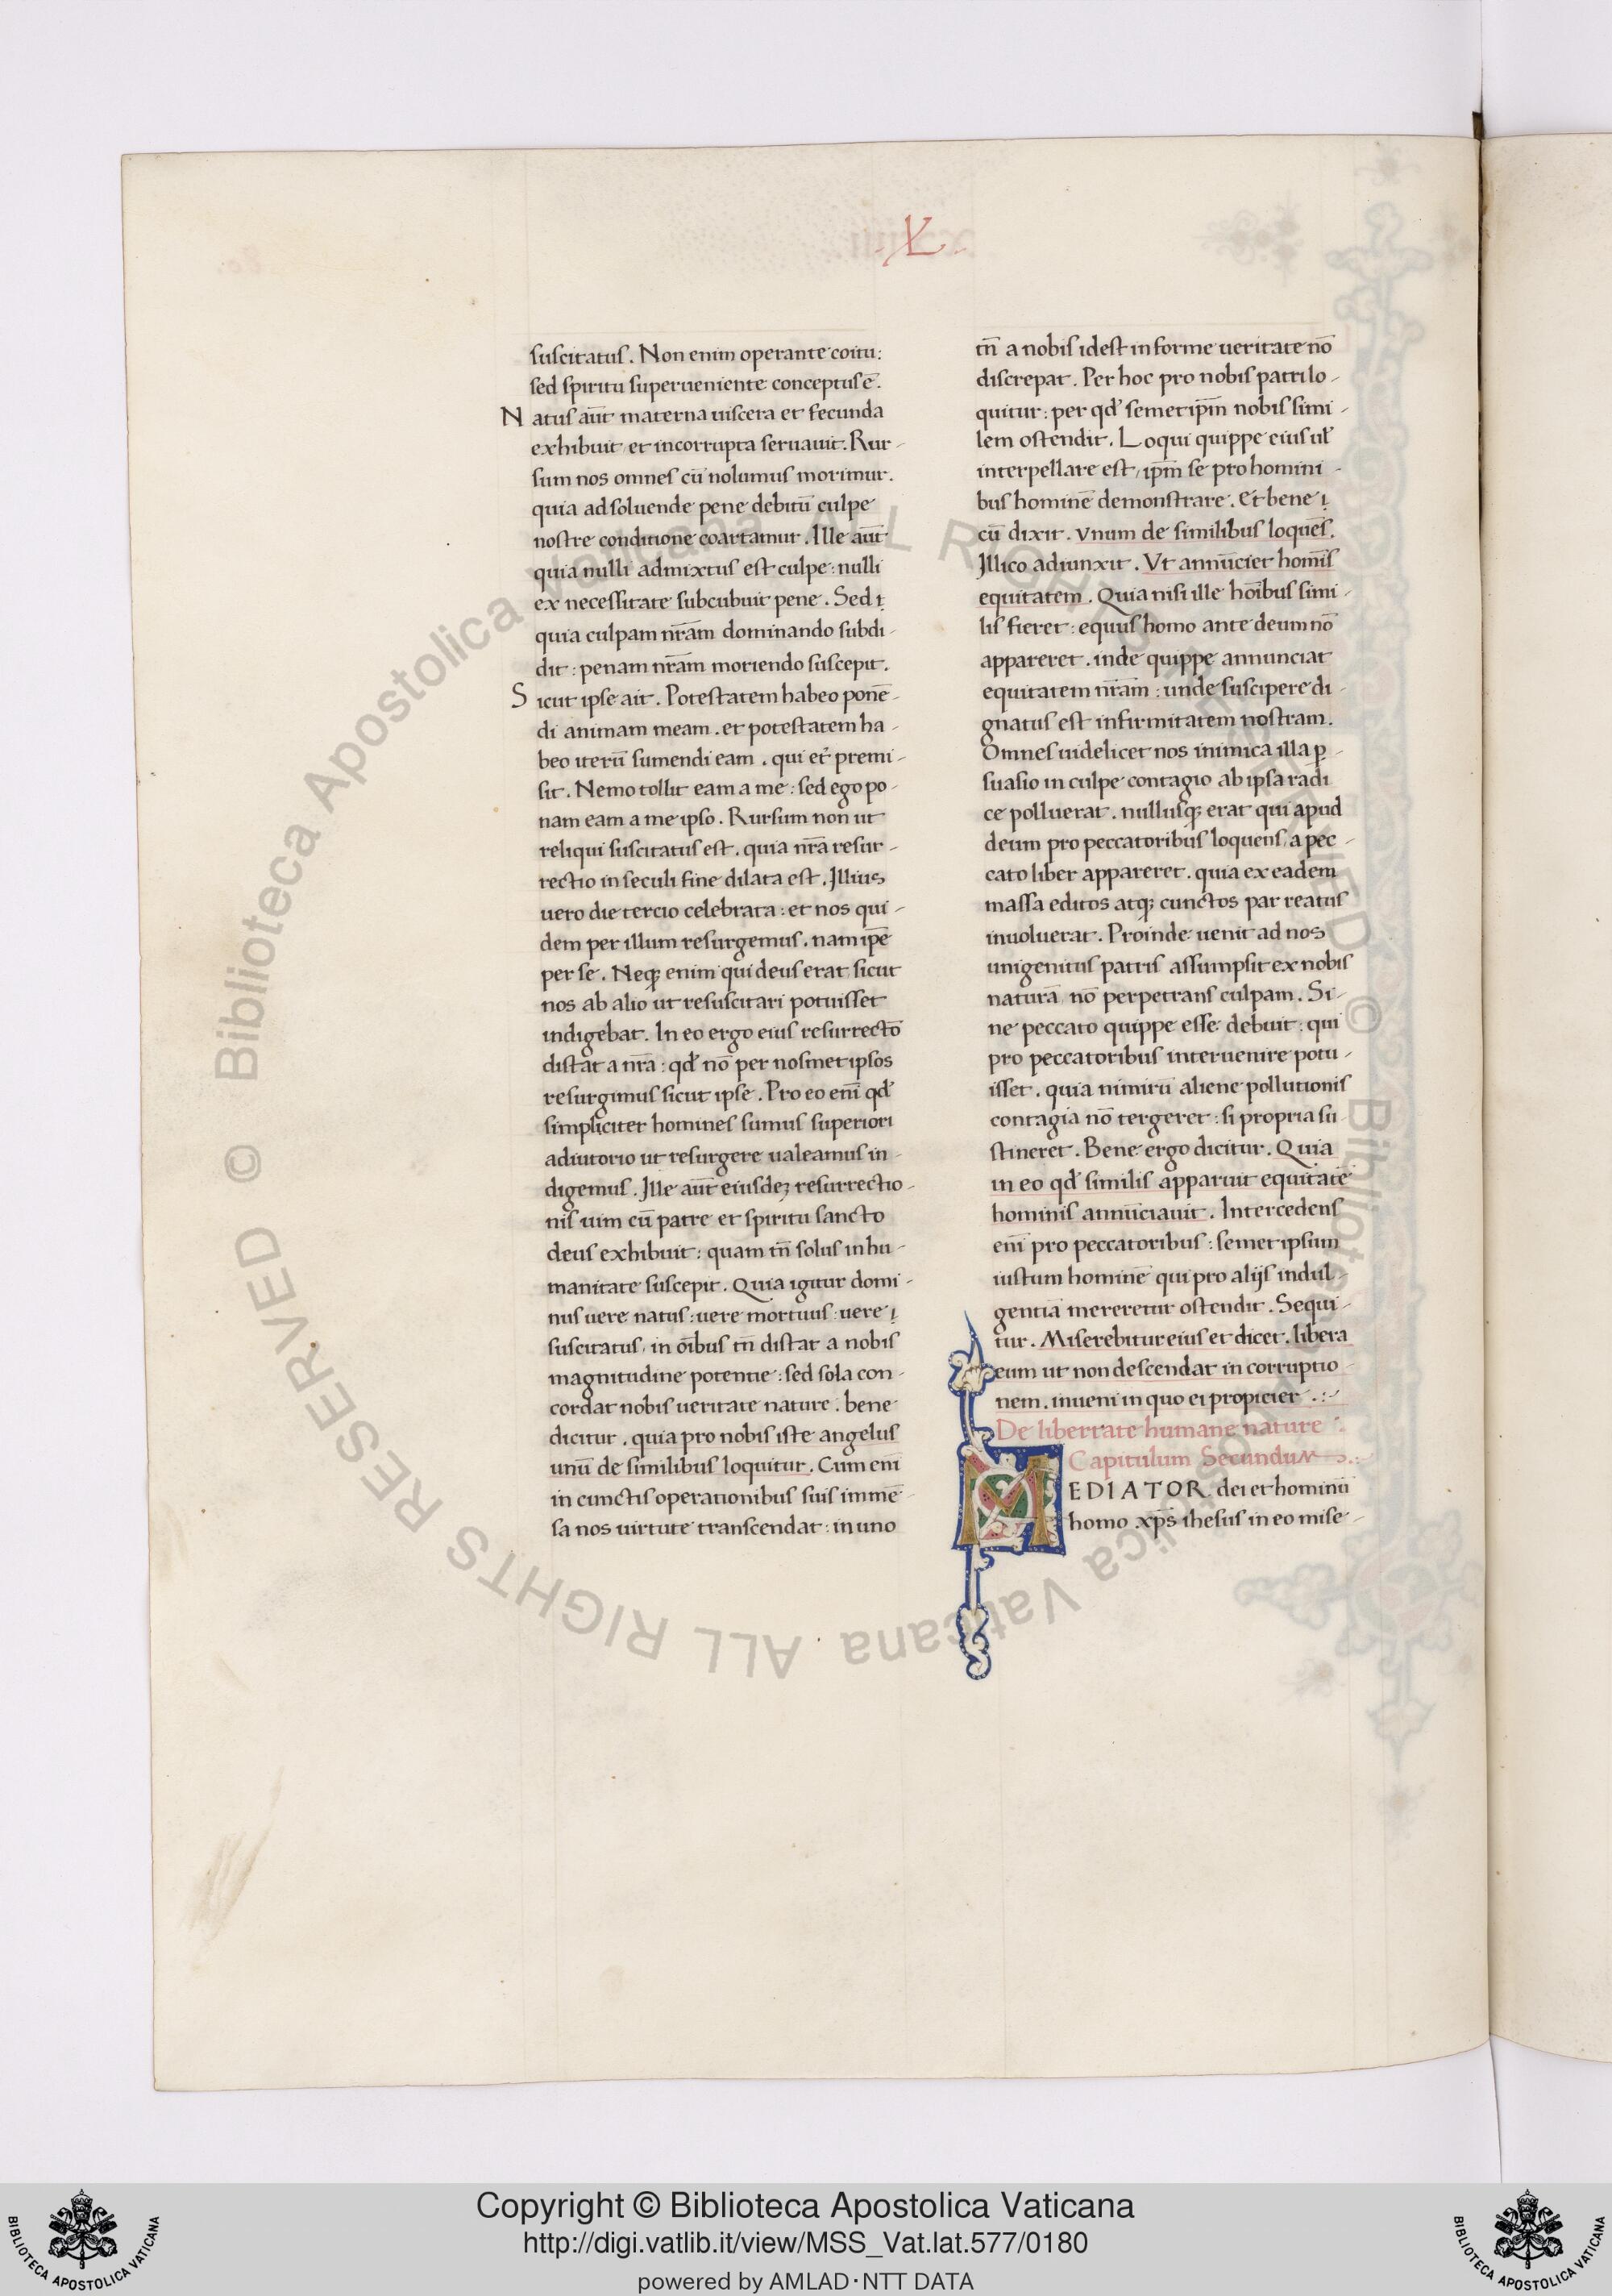 .X.
suscitatus. Non enim operante coitu:
sed spiritu superueniente conceptus ē.
Natus aūt materna uiscera et fecunda
exhibuit et incorrupta seruauit. Rur-
sum nos omnes cū nolumus morimur.
quia ad soluende pene debitū culpe
nostre conditione coartamur. Ille aūt
quia nulli admixtus est culpe: nulli
ex necessitate subcubuit pene. Sed
quia culpam nr̄am dominando subdi-
dit: penam nr̄am moriendo suscepit.
Sicut ipse ait. Potestatem habeo ponē-
di animam meam. et potestatem ha-
beo iterū sumendi eam. qui premi-
sit. Nemo tollit eam a me: sed ego po-
nam eam a me ipso. Rursum non ut
reliqui suscitatus est. quia nr̄a resur-
rectio in seculi fine dilata est. Illius
uero die tercio celebrata: et nos qui-
dem per illum resurgemus. nam ip̄e
per se. Neq; enim qui deus erat sicut
nos ab alio ut resuscitari potuisset
indigebat. In eo ergo eius resurrectō
distat a nr̄a: qđ nō per nosmet ipsos
resurgimus sicut ipse. Pro eo enī qđ
simpliciter homines sumus superiori
adiutorio ut resurgere ualeamus in-
digemus. Ille aūt eiusdeꝫ resurrectio-
nis uim cū patre et spiritu sancto
deus exhibuit: quam tn̄ solus in hu-
manitate suscepit. Quia igitur domi-
nus uere natus: uere mortuus: uere
suscitatus, in ōibus tn̄ distat a nobis
magnitudine potentie: sed sola con-
cordat nobis ueritate nature. bene
dicitur. quia pro nobis iste angelus
unū de similibus loquitur. Cum enī
in cunctis operationibus suis immē-
sa nos uirtute transcendat: in uno
tn̄ a nobis idest in forme ueritate nō
discrepat. Per hoc pro nobis patri lo-
quitur: per qđ semetip̄m nobis simi-
lem ostendit. Loqui quippe eius uł
interpellare est, ip̄m se pro homini-
bus hominē demonstrare. Et bene
cū dixit. vnum de similibus loquēs.
Illico adiunxit. Vt annūciet homīs
equitatem. Quia nisi ille hoībus simi-
lis fieret: equus homo ante deum nō
appareret. inde quippe annunciat
equitatem nr̄am: unde suscipere di-
gnatus est infirmitatem nostram.
Omnes uidelicet nos inimica illa ꝑ-
suasio in culpe contagio ab ipsa radi
ce polluerat. nullusq; erat qui apud
deum pro peccatoribus loquens, a pec-
cato liber appareret. quia ex eadem
massa editos atq; cunctos par reatus
inuoluerat. Proinde uenit ad nos
unigenitus patris assumpsit ex nobis
naturā, nō perpetrans culpam. Si-
ne peccato quippe esse debuit: qui
pro peccatoribus interuenire potu-
isset. quia nimirū aliene pollutionis
contagia nō tergeret: si propria su-
stineret. Bene ergo dicitur. Quia
in eo qđ similis apparuit equitatē
hominis annūciauit. Intercedens
enī pro peccatoribus: semet ipsum
iustum hominē qui pro alijs indul-
gentiā mereretur ostendit. Sequi-
tur. Miserebitur eius et dicet. libera
eum ut non descendat in corruptio-
nem. inueni in quo ei propicier.
De libertate humane nature
Capitulum Secundum.
MEDIATOR dei et hominū
homo xp̄s ihesus in eo mise-
© Biblioteca Apostolica Vaticana ALL RIGHTS RESERVED © Biblioteca Apostolica Vaticana ALL RIGHTS RESERVED
Copyright © Biblioteca Apostolica Vaticana
http://digi.vatlib.it/view/MSS_Vat.lat.577/0180
powered by AMLAD·NTT DATA
BIBLIOTECA APOSTOLICA VATICANA
BIBLIOTECA APOSTOLICA VATICANA